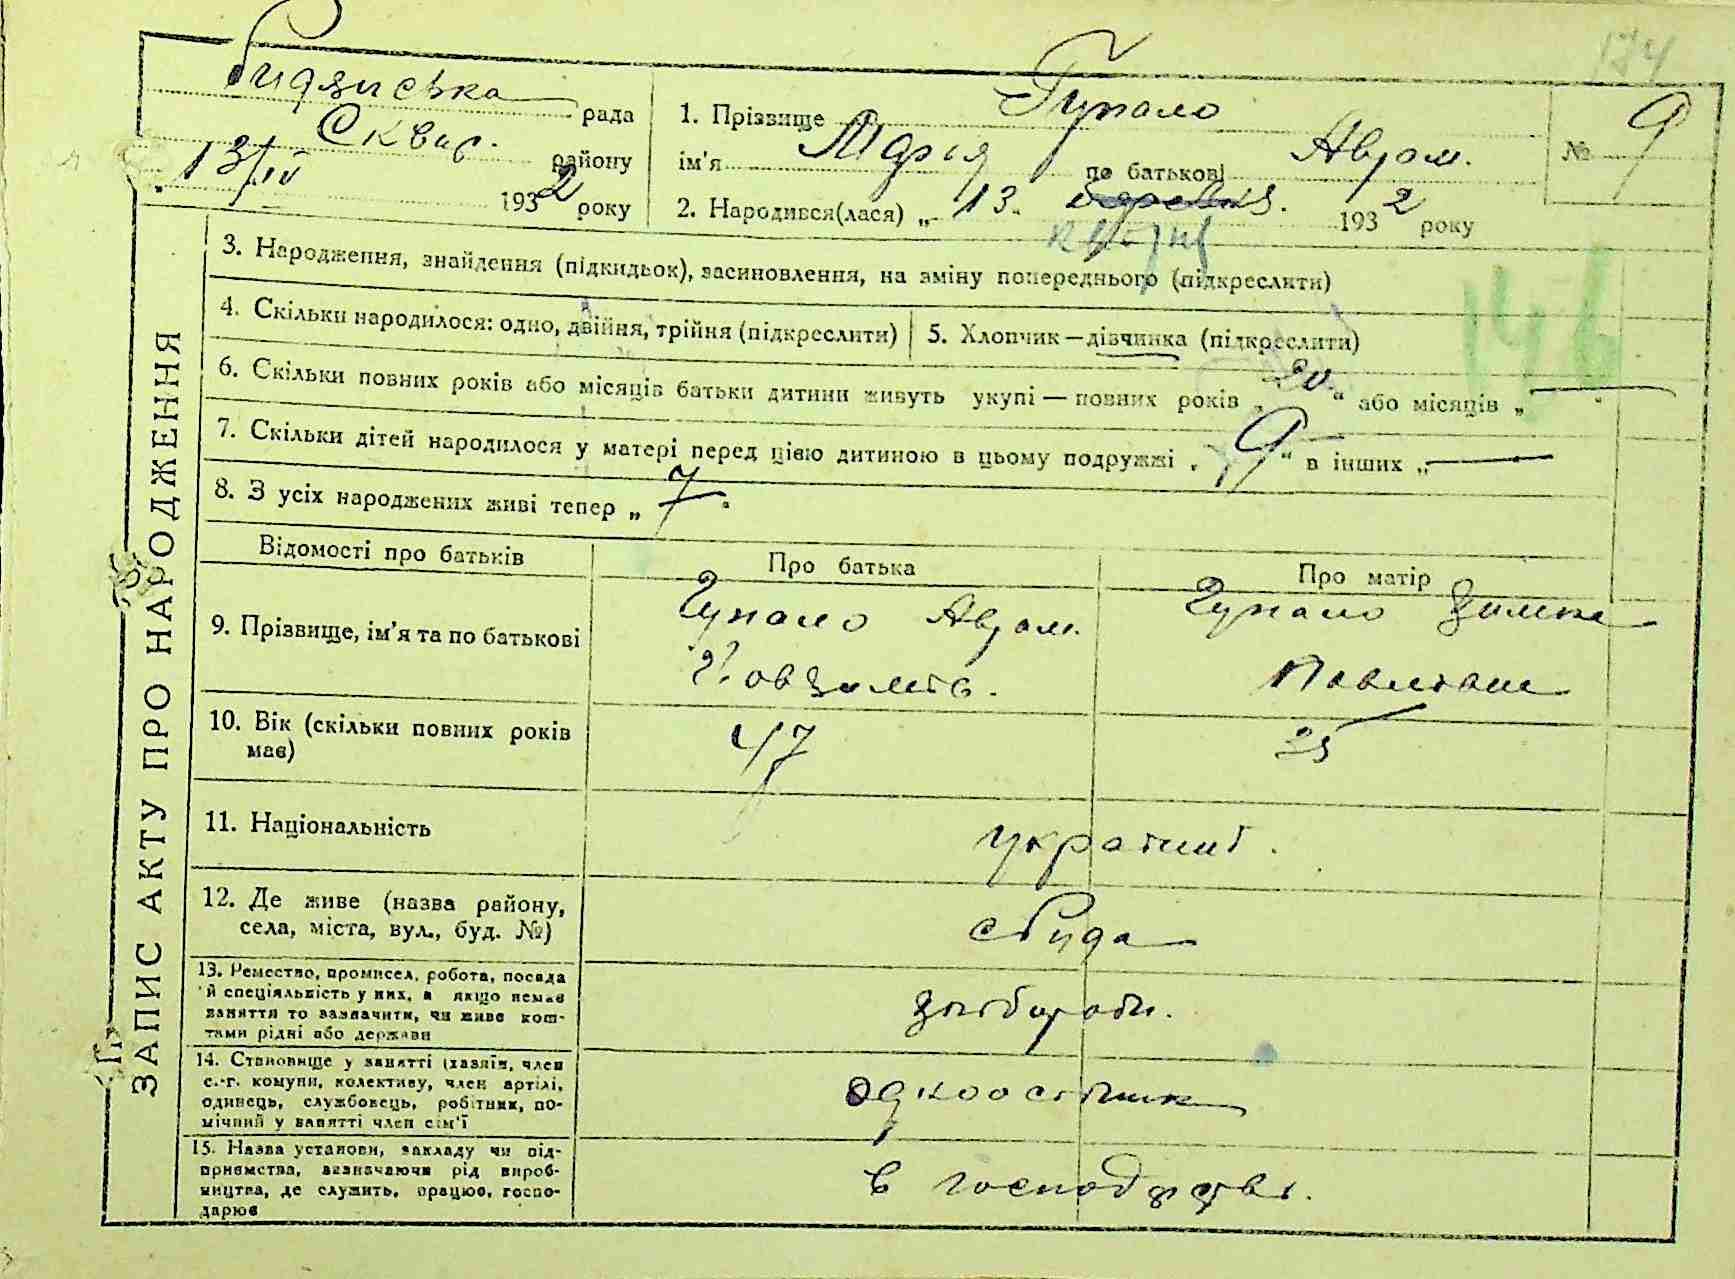 174
Рудянська рада
Сквир. району
13/IV 1932 року
1. Прізвище Гупало
ім'я Марія по батькові Аврам.
№ 9
2. Народився(лася) „ 13. березня. 1932 року
квітня
3. Народження, знайдення (підкидьок), засиновлення, на зміну попереднього (підкреслити)
146
4. Скільки народилося: одно, двійня, трійня (підкреслити)
5. Хлопчик—дівчинка (підкреслити)
6. Скільки повних років або місяців батьки дитини живуть укупі — повних років „ 20 “ або місяців „ —
7. Скільки дітей народилося у матері перед цією дитиною в цьому подружжі „ 9 “ в інших „ —
8. З усіх народжених живі тепер „ 7 “
ЗАПИС АКТУ ПРО НАРОДЖЕННЯ
Відомості про батьків
Про батька
Про матір
9. Прізвище, ім'я та по батькові
Гупало Аврам.
Гупало
10. Вік (скільки повних років
має)
47
35
11. Національність
україні.
12. Де живе (назва району,
села, міста, вул., буд. №)
с Руда
13. Ремество, промисел, робота, посада
й спеціяльність у них, а якщо немає
заняття то зазначити, чи живе кош-
тами рідні або держави
хлібороби.
14. Становище у занятті (хазяїн, член
с.-г. комуни, колективу, член артілі,
одинець, службовець, робітник, по-
мічний у занятті член сім'ї
одноосібник
15. Назва установи, закладу чи під-
приємства, зазначаючи рід вироб-
ництва, де служить, працює, госпо-
дарює
в господарстві.